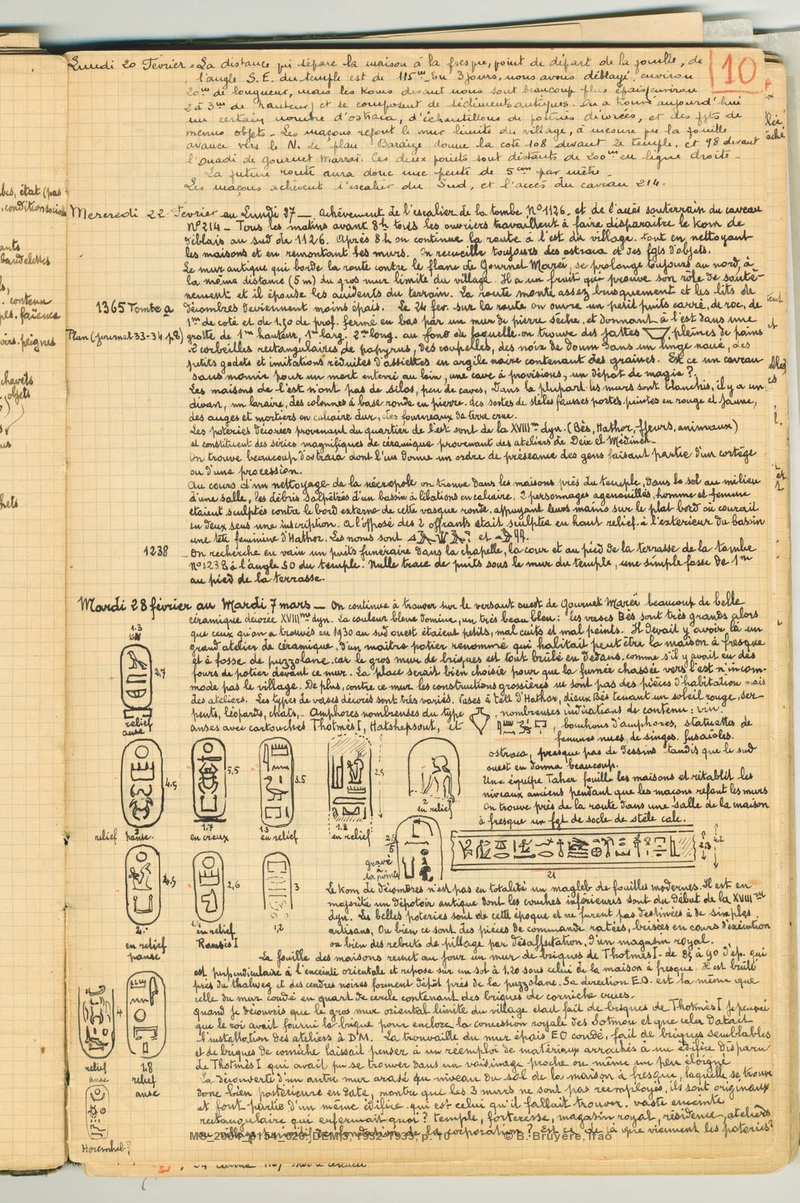 10
Lundi 20 Février. La distance qui sépare la maison à la fresque, point de départ de la fouille, de
l'angle S.E. du temple est de 115m. En 3 jours, nous avons déblayé environ
20m de longueur, mais les Koms devant nous sont beaucoup plus épais (environ
2 à 3m de hauteur) et se composent de sédiments antiques. On a trouvé aujourd'hui
un certain nombre d'ostraca, d'échantillons de poteries décorées, et des fgts de
menus objets. Les maçons refont le mur limite du village, à mesure que la fouille
avance vers le N. Le plan Baraize donne la cote 108 devant le temple, et 98 devant
l'Ouadi de Gournet Marraï. Ces deux points sont distants de 200m en ligne droite.
La future route aura donc une pente de 5cm par mètre.
Les maçons achèvent l'escalier du Sud, et l'accès du caveau 214.
Mercredi 22 Février au Lundi 27 — Achèvement de l'escalier de la tombe N°1126. et de l'accès souterrain du caveau
N°214 - Tous les matins avant 8h tous les ouvriers travaillent à faire disparaitre le Kom de
déblais au sud de 1126. Après 8h on continue la route à l'est du village tout en nettoyant
les maisons et en remontant les murs. On recueille toujours des ostraca et des fgts d'objets.
Le mur antique qui borde la route contre le flanc de Gournet Mareï, se prolonge toujours au nord, à
la même distance (5m) du gros mur limite du village. Il a un fruit qui prouve son rôle de soutè-
nement et il épouse les accidents du terrain. La route monte assez brusquement et les lits de
1365 Tombe a
décombres deviennent moins épais. Le 24 fev. sur la route on ouvre un petit puits carré, de roc, de
1m de coté et de 1,50 de prof. fermé en bas par un mur de pierre sèche, et donnant à l'est dans une
Plan (journal 33-34, p8)
grotte de 1m hauteur, 1m larg. 2m long. au fond de laquelle on trouve des jattes pleines de pains
2 corbeilles rectangulaires de papyrus, des coupelles, des noix de doum dans un linge noué, des
petits godets et imitations réduites d'assiettes en argile noire contenant des graines. Est ce un caveau
sans momie pour un mort enterré au loin, une cave à provisions, un dépôt de magie?
Les maisons de l'est n'ont pas de silos, peu de caves. Dans la plupart les murs sont blanchis, il y a un
divan, un laraire, des colonnes à base ronde en pierre. des sortes de stèles fausses portes peintes en rouge et jaune,
des auges et mortiers en calcaire dur, des fourneaux de terre crue.
Les poteries décorées provenant du quartier de l'est sont de la XVIIIme dyn. (Bès, Hathor, fleurs, animaux)
et constituent des séries magnifiques de céramique provenant des ateliers de Deir el Médineh.
On trouve beaucoup d'ostraca dont l'un donne un ordre de préséance des gens faisant partie d'un cortège
ou d'une procession.
Au cours d'un nettoyage de la nécropole on trouve dans les maisons près du temple, dans le sol au milieu
d'une salle, les débris salpêtrés d'un bassin à libations en calcaire. 2 personnages agenouillés, homme et femme
étaient sculptés contre le bord externe de cette vasque ronde, appuyant leurs mains sur le plat bord où courait
en deux sens une inscription. A l'opposé des 2 offrants était sculptée en haut relief, à l'extérieur du bassin
une tête féminine d'Hathor. Les noms sont et
1238
On recherche en vain un puits funéraire dans la chapelle, la cour et au pied de la terrasse de la tombe
N°1238 à l'angle SO du temple. Nulle trace de puits sous le mur du temple, une simple fosse de 1m
au pied de la terrasse.
Mardi 28 février au Mardi 7 mars — On continue à trouver sur le versant ouest de Gournet Mareï beaucoup de belle
céramique décorée XVIIIme dyn. La couleur bleue domine, un très beau bleu: les vases Bès sont très grands alors
que ceux qu'on a trouvés en 1930 au sud ouest étaient petits, mal cuits et mal peints. Il devait y avoir là un
grand atelier de céramique, d'un maître potier renommé qui habitait peut être la maison à fresque
et à fosse de puzzolane. car le gros mur de briques est tout brûlé en dedans, comme s'il y avait eu des
fours de potier devant ce mur. La place serait bien choisie pour que la fumée chassée vers l'est n'incom-
mode pas le village. De plus, contre ce mur les constructions grossières ne sont pas des pièces d'habitation mais
des ateliers. Les types de vases décorés sont très variés. Vases à tête d'Hathor, dieux Bès tenant un soleil rouge, ser-
pents, léopards, chats,. Amphores nombreuses du type , nombreuses indications de contenu: vin
anses avec cartouches Thotmès I, Hatshepsout, et bouchons d'amphores, statuettes de
femmes nues, de singes. fusaïoles.
ostraca, presque pas de dessins tandis que le sud
ouest en donna beaucoup.
Une équipe Taher fouille les maisons et rétablit les
niveaux anciens pendant que les maçons refont les murs
On trouve près de la route dans une salle de la maison
à fresque un fgt. de socle de stèle calc.
1.3
2,7
relief
anse
4.5
relief panse.
5,5
1.7
en creux
3.5
1.3
en relief
2,5
1.2
en relief
2
en relief
gravé
à la pointe
21
4,5
2.
en relief
panse
2,6
en relief
Ramsès I
3
1,2
4
relief
anse
1.8
relief
anse
Horemheb?
Le Kom de décombres n'est pas en totalité un magleb de fouilles modernes. Il est en
majorité un dépotoir antique dont les couches inférieures sont du début de la XVIIIme
dyn. Les belles poteries sont de cette époque et ne furent pas destinées à de simples
artisans, Ou bien ce sont des pièces de commande ratées, brisées en cours d'exécution
ou bien des rebuts de pillage par désaffectation, d'un magasin royal.
La fouille des maisons remet au jour un mur de briques de Thotmès I. de 85 à 90 d'ép. qui
est perpendiculaire à l'enceinte orientale et repose sur un sol à 1,20 sous celui de la maison à fresque. Il est brûlé
près du thalweg et des cendres noires forment dépôt près de la puzzolane. Sa direction EO. est la même que
celle du mur coudé en quart de cercle contenant des briques de corniche crues.
Quand je découvris que le gros mur oriental limite du village était fait de briques de Thotmès I je pensai
que le roi avait fourni la brique pour enclore la concession royale des Sotmou et que cela datait
l'installation des ateliers à D'M. La trouvaille du mur épais EO coudé, fait de briques semblables
et de briques de corniche laissait penser à un réemploi de matériaux arrachés à un édifice disparu
de Thotmès I qui avait pu se trouver dans un voisinage proche ou même un peu éloigné
La découverte d'un autre mur arasé au niveau du sol de la maison à fresque, laquelle se trouve
donc bien postérieure en date, montre que les 3 murs ne sont pas réemployés, ils sont originaux
et font partie d'un même édifice qui est celui qu'il fallait trouver. vaste enceinte
rectangulaire qui enfermait quoi? temple, forteresse, magasin royal, résidence, ateliers
de la corporation? Est ce de là que viennent les poteries
MS_2004_0154_020 DEM_3, 1932-1933, p. 10 © B. Bruyère, Ifao